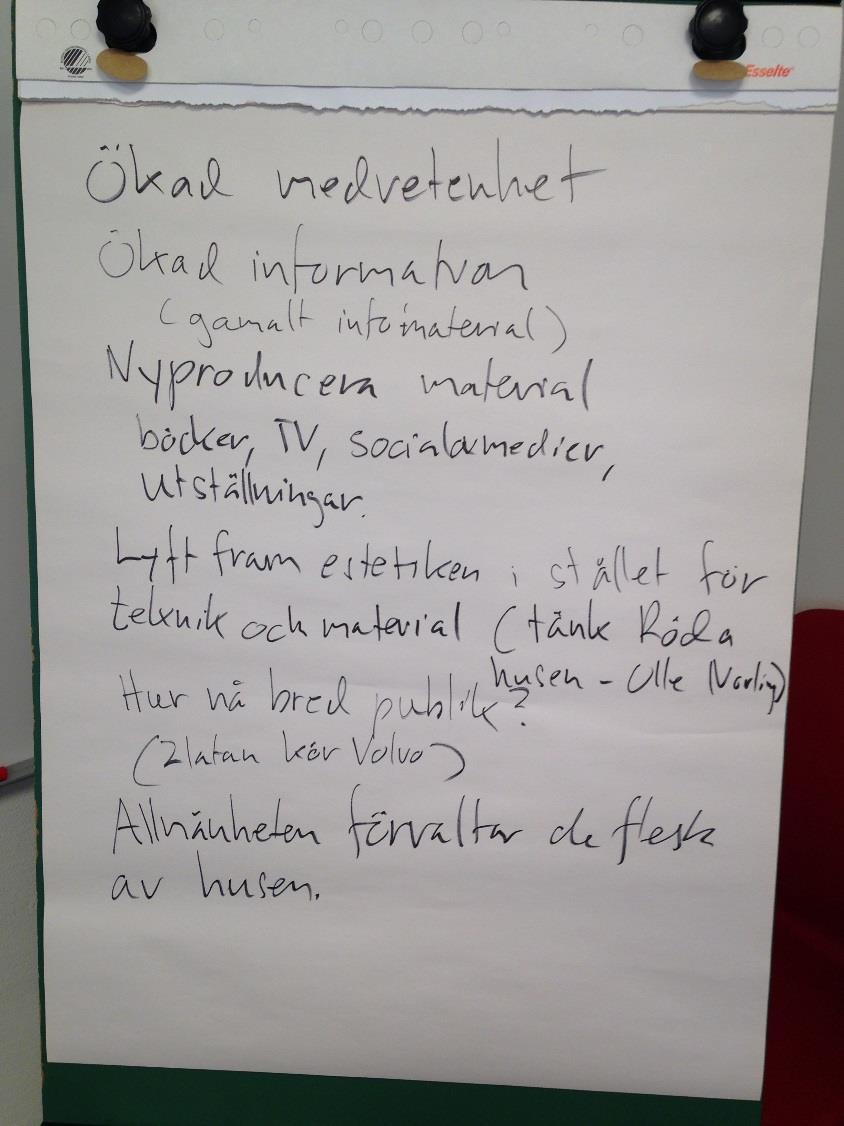 Esselte
Ökad medvetenhet
Ökad information
(gamalt infomaterial)
Nyproducera material
böcker, TV, socialamedier,
utställningar.
Lyft fram estetiken i stället för
teknik och material (tänk Röda
husen - Olle
Hur nå bred publik?
(Zlatan kör Volvo)
Allmänheten förvaltar de flesta
av husen.